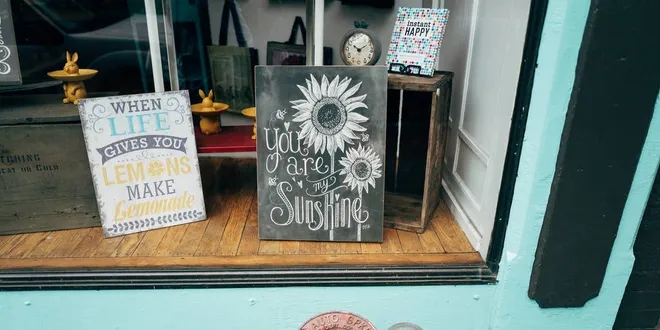 WHEN
LIFE
GIVES YOU
LEMONS
MAKE
Lemonade
You
are
my
Sunshine
instant
HAPPY